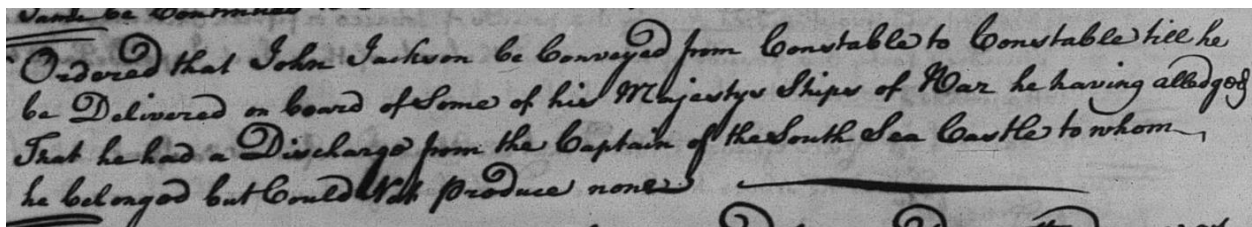 Same be Continued
Ordered that John Jackson be Conveyed from Constable to Constable till he
be Delivered on board of Some of his Majestys Ships of War he having alledged
That he had a Discharge from the Captain of the South Sea Castle to whom
he belonged but Could Not Produce none